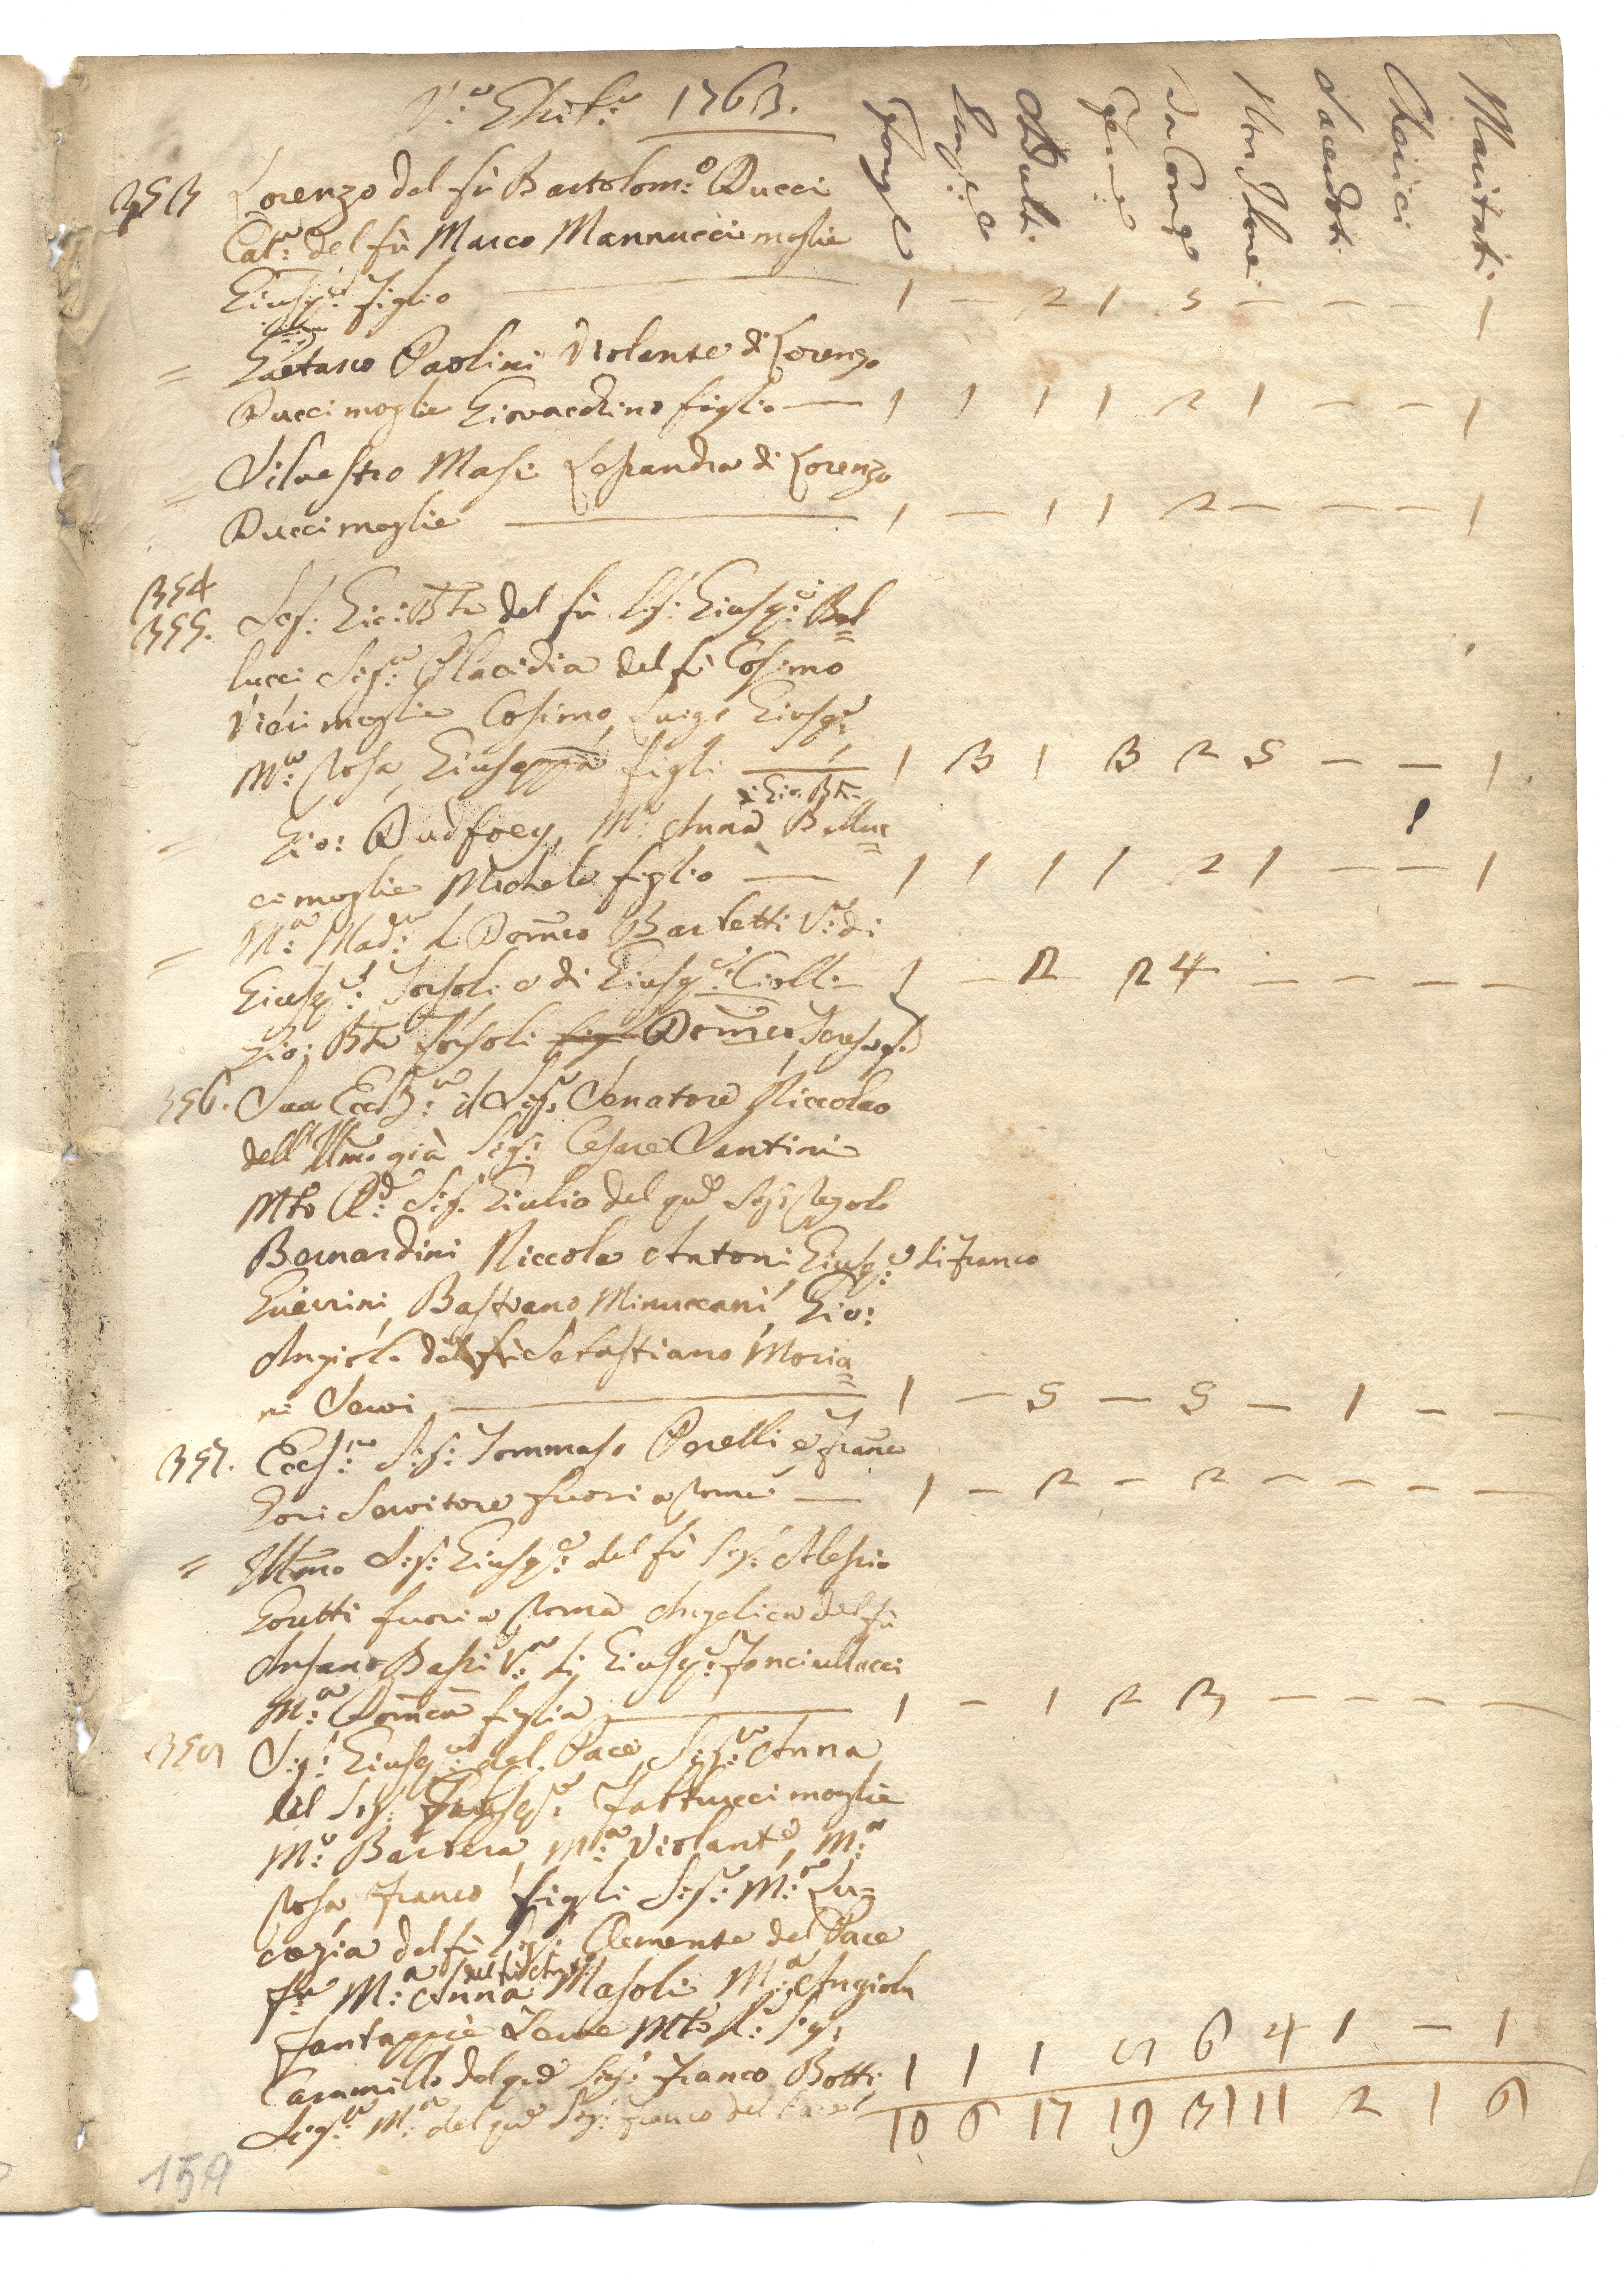 V.a Ghib.a 1763.
Famigl.e Angeli Adulti Femine da Com.e Non Idonei Sacerdoti Cherici Maritati
353 Lorenzo del fù Bartolom:o Ducci
Cat:a del fù Marco Mannucci moglie
Giusp:e figlio — 1 — 2 1 3 — — — 1
= Gaetano Paolini Violante di Lorenzo
Ducci moglie Giovacchino figlio — 1 1 1 1 2 1 — — 1
= Silvestro Masi Lessandra di Lorenzo
Ducci moglie — 1 — 1 1 2 — — — 1
354
355. Sig: Gio: Bta del fù Sig: Giusp:e Bel=
lucci Sig:a Placidia del fù Cosimo
Vieri moglie Cosimo, Luigi Giusp:e
M:a Rosa, Giuseppa figli — 1 3 1 3 2 5 — — 1
di Gio: Bta
= Gio: Dudfoey, M:a Anna Belluc=
ci moglie Michele figlio — 1 1 1 1 2 1 — — 1
= M:a Mad:a di Dom:co Barletti V:a di
Giusp:e Torsoli e di Giusp:e Ciolli — 1 — 2 2 4 — — — —
Gio: Bta Torsoli Dom:co
356. Sua Ecclz:a il Sig:e Senatore Niccolao
dell Illmo già Sig: Cesare Vantini
Mto R:d Sig: Giulio del qm Sig:
Bernardini Niccola Antoni, Giusp:e di Franco
Guerrini, Bastiano Minuccani, Gio:
Angiolo del fù Sebastiano Moria=
ni Servi — 1 — 5 — 5 — 1 — —
357. Eccl:mo Sig: Tommaso Perelli e Franco
Gori Servitore fuori a Roma — 1 — 2 — 2 — — — —
= Illmo Sig: Giusp:e del fù Sig: Alessio
Goretti fuori a Roma Angelica del fù
Ansano Bassi V:a di Giusp:e Fonciullacci
M:a Dom:ca figlia — 1 — 1 2 3 — — — —
358 Sig: Giusp:e del Pace, Sig:a Anna
del Sig: Giusp:e Fattucci moglie
M:a Barbera, M:a Violante, M:a
Rosa Franco figli Sig:a M:a Lu=
crezia del fù Sig: Clemente del Pace
del fù Ant:o
M:a Anna Masoli M:a Angiola
Fantappiè Serve Mto R: Sig:
Cammillo del qm Sig: Franco Botti 1 1 1 5 6 4 1 — 1
Sig:a M:a del qm Sig: Franco del 10 6 17 19 31 11 2 1 6
159